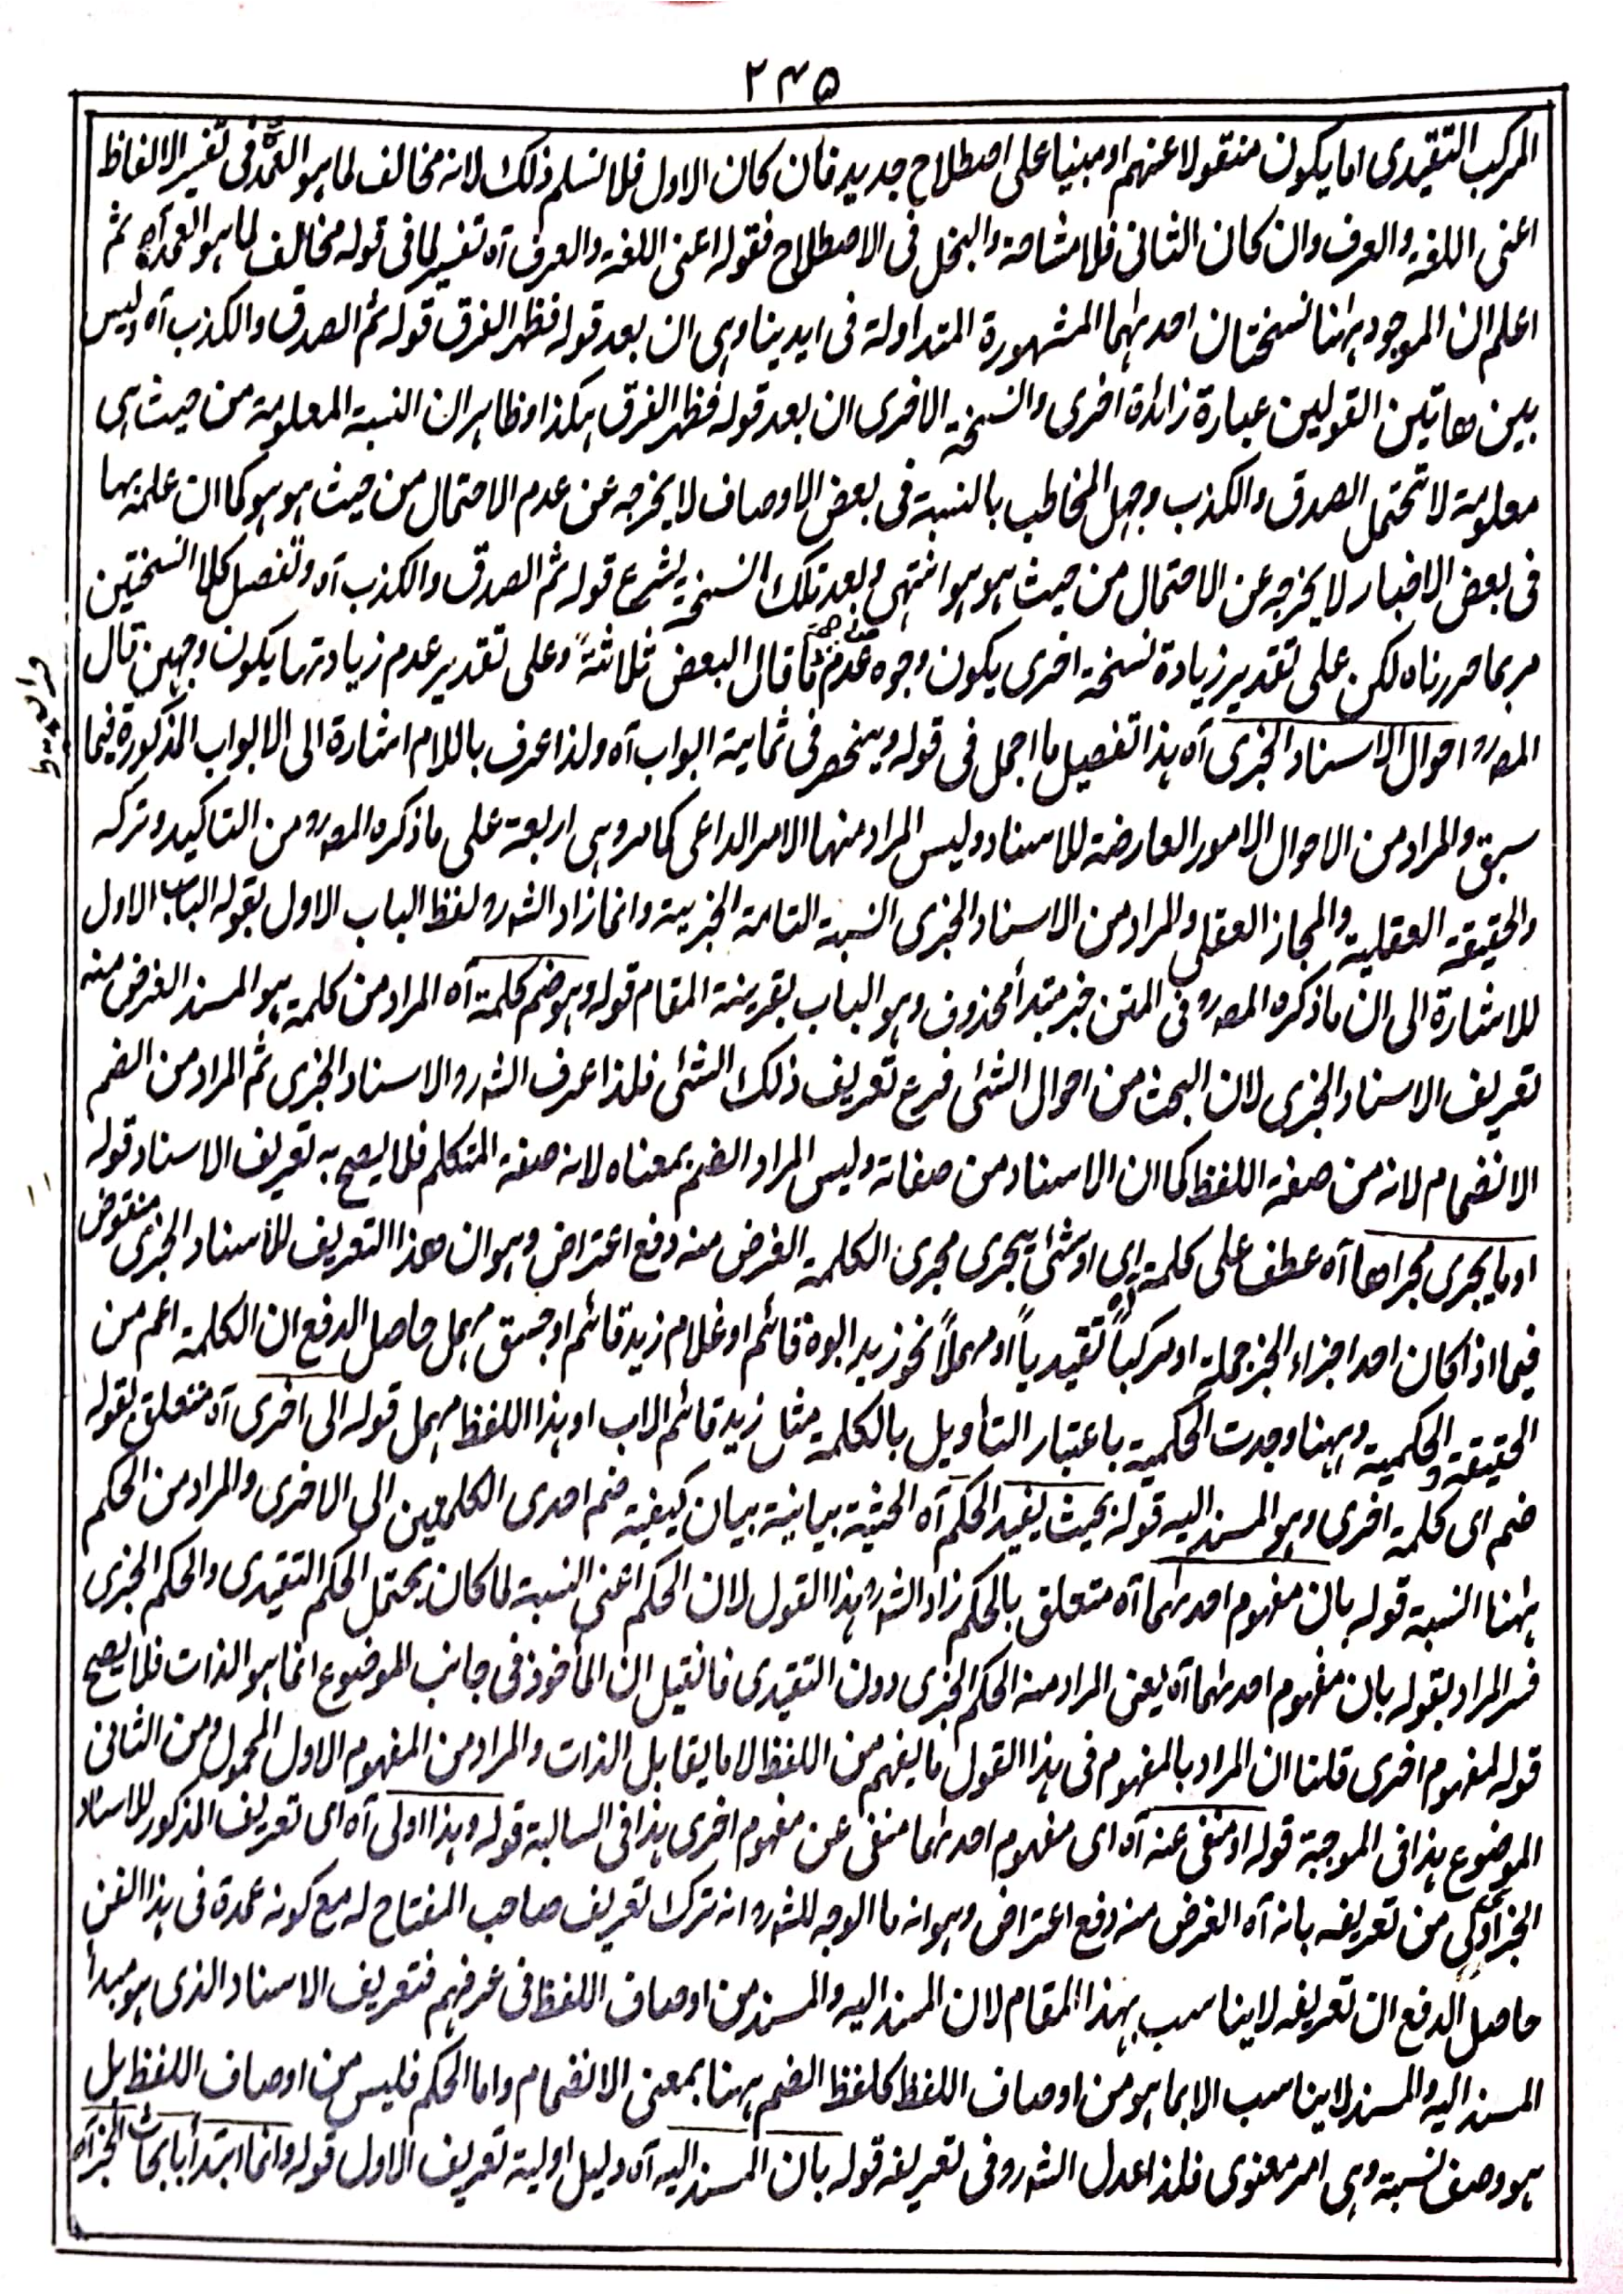 ۲۴۵
المركب التقيدى اما يكون منقولا عنهم او مبنيا على اصطلاح جديد فان كان الاول فلا نسلم ذلك لانه مخالف لما هو العمدة فى تفسير الالفاظ
اعنى اللغة والعرف وان كان الثانى فلا مشاحة والبخل فى الاصطلاح فقوله اعنى اللغة والعرف آه تفسير لما فى قوله مخالف لما هو العمدة آه ثم
اعلم ان الموجود ههنا نسختان احدٰهما المشهورة المتداولة فى ايدينا وهى ان بعد قوله فظهر الفرق قوله ثم الصدق والكذب آه وليس
بين هاتين القولين عبارة زائدة اخرى والنسخة الاخرى ان بعد قوله فظهر الفرق هكذا وظاهر ان النسبة المعلومة من حيث هى
معلومة لا تحتمل الصدق والكذب وجهل المخاطب بالنسبة فى بعض الاوصاف لا يخرجه عن عدم الاحتمال من حيث هو هو كما ان علمه بها
فى بعض الاخبار لا يخرجه عن الاحتمال من حيث هو هو انتهى وبعد تلك النسخة يشرع قوله ثم الصدق والكذب آه وتفصيل كلا النسختين
مر بما حررناه لكن على تقدير زيادة نسخة اخرى يكون وجوه عدم صحة ما قال البعض ثلاثة وعلى تقدير عدم زيادتها يكون وجهين قال
المصرو احوال الاسناد الخبرى آه هذا تفصيل ما اجمل فى قوله وينحصر فى ثمانية ابواب آه ولذا عرف باللام اشارة الى الابواب المذكورة فيما
سبق والمراد من الاحوال الامور العارضة للاسناد وليس المراد منها الامر الداعى كما مر وهى اربعة على ما ذكره المصرو من التاكيد وتركه
والحقيقة العقلية والمجاز العقلى والمراد من الاسناد الخبرى النسبة التامة الخبرية وانما زاد الشرو لفظ الباب الاول بقوله الباب الاول
للاشارة الى ان ما ذكره المصرو فى المتن خبر مبتدأ محذوف وهو الباب بقرينة المقام قوله وهو ضم كلمة آه المراد من كلمة هو المسند الغرض منه
تعريف الاسناد الخبرى لان البحث من احوال الشئ فرع تعريف ذلك الشئ فلذا عرف الشرو الاسناد الخبرى ثم المراد من الضم
الانضمام لانه من صفة اللفظ كما ان الاسناد من صفاته وليس المراد الضم بمعناه لانه صفة المتكلم فلا يصح به تعريف الاسناد قوله
او ما يجرى مجراها آه عطف على كلمة اى او شئ يجرى مجرى الكلمة الغرض منه دفع اعتراض وهو ان هذا التعريف للاسناد الخبرى منقوض
فيما اذا كان احد اجزاء الخبر جملة او مركباً تقيدياً او مهملاً نحو زيد ابوه قائم او غلام زيد قائم او جسق مهمل حاصل الدفع ان الكلمة اعم من
الحقيقة والحكمية وههنا وجدت الحكمية باعتبار التأويل بالكلمة مثل زيد قائم الاب او هذا اللفظ مهمل قوله الى اخرى آه متعلق بقوله
ضم اى كلمة اخرى وهو المسند اليه قوله بحيث يفيد الحكم آه الحيثية بيانية بيان كيفية ضم احدى الكلمتين الى الاخرى والمراد من الحكم
ههنا النسبة قوله بان مفهوم احدٰهما آه متعلق بالحكم زاد الشرو هذا القول لان الحكم اعنى النسبة لما كان يحتمل الحكم التقيدى والحكم الخبرى
فسر المراد بقوله بان مفهوم احدٰهما آه يعنى المراد منه الحكم الخبرى دون التقيدى فان قيل ان المأخوذ فى جانب الموضوع انما هو الذات فلا يصح
قوله لمفهوم اخرى قلنا ان المراد بالمفهوم فى هذا القول ما يفهم من اللفظ لا ما يقابل الذات والمراد من المفهوم الاول المحمول ومن الثانى
الموضوع هذا فى الموجبة قوله او منفى عنه آه اى مفهوم احدٰهما منفى عن مفهوم اخرى هذا فى السالبة قوله وهذا اولى آه اى تعريف المذكور للاسناد
الخبرى اولى من تعريفه بانه آه الغرض منه دفع اعتراض وهو انه ما الوجه للشرو انه ترك تعريف صاحب المفتاح له مع كونه عمدة فى هذا الفن
حاصل الدفع ان تعريفه لا يناسب بهذا المقام لان المسند اليه والمسند من اوصاف اللفظ فى عرفهم فتعريف الاسناد الذى هو مبدأ
المسند اليه والمسند لا يناسب الا بما هو من اوصاف اللفظ كلفظ الضم ههنا بمعنى الانضمام واما الحكم فليس من اوصاف اللفظ بل
هو وصف نسبة وهى امر معنوى فلذا عدل الشرو فى تعريفه قوله بان المسند اليه آه دليل اولية تعريف الاول قوله وانما ابتدأ بابحاث الخبر آه